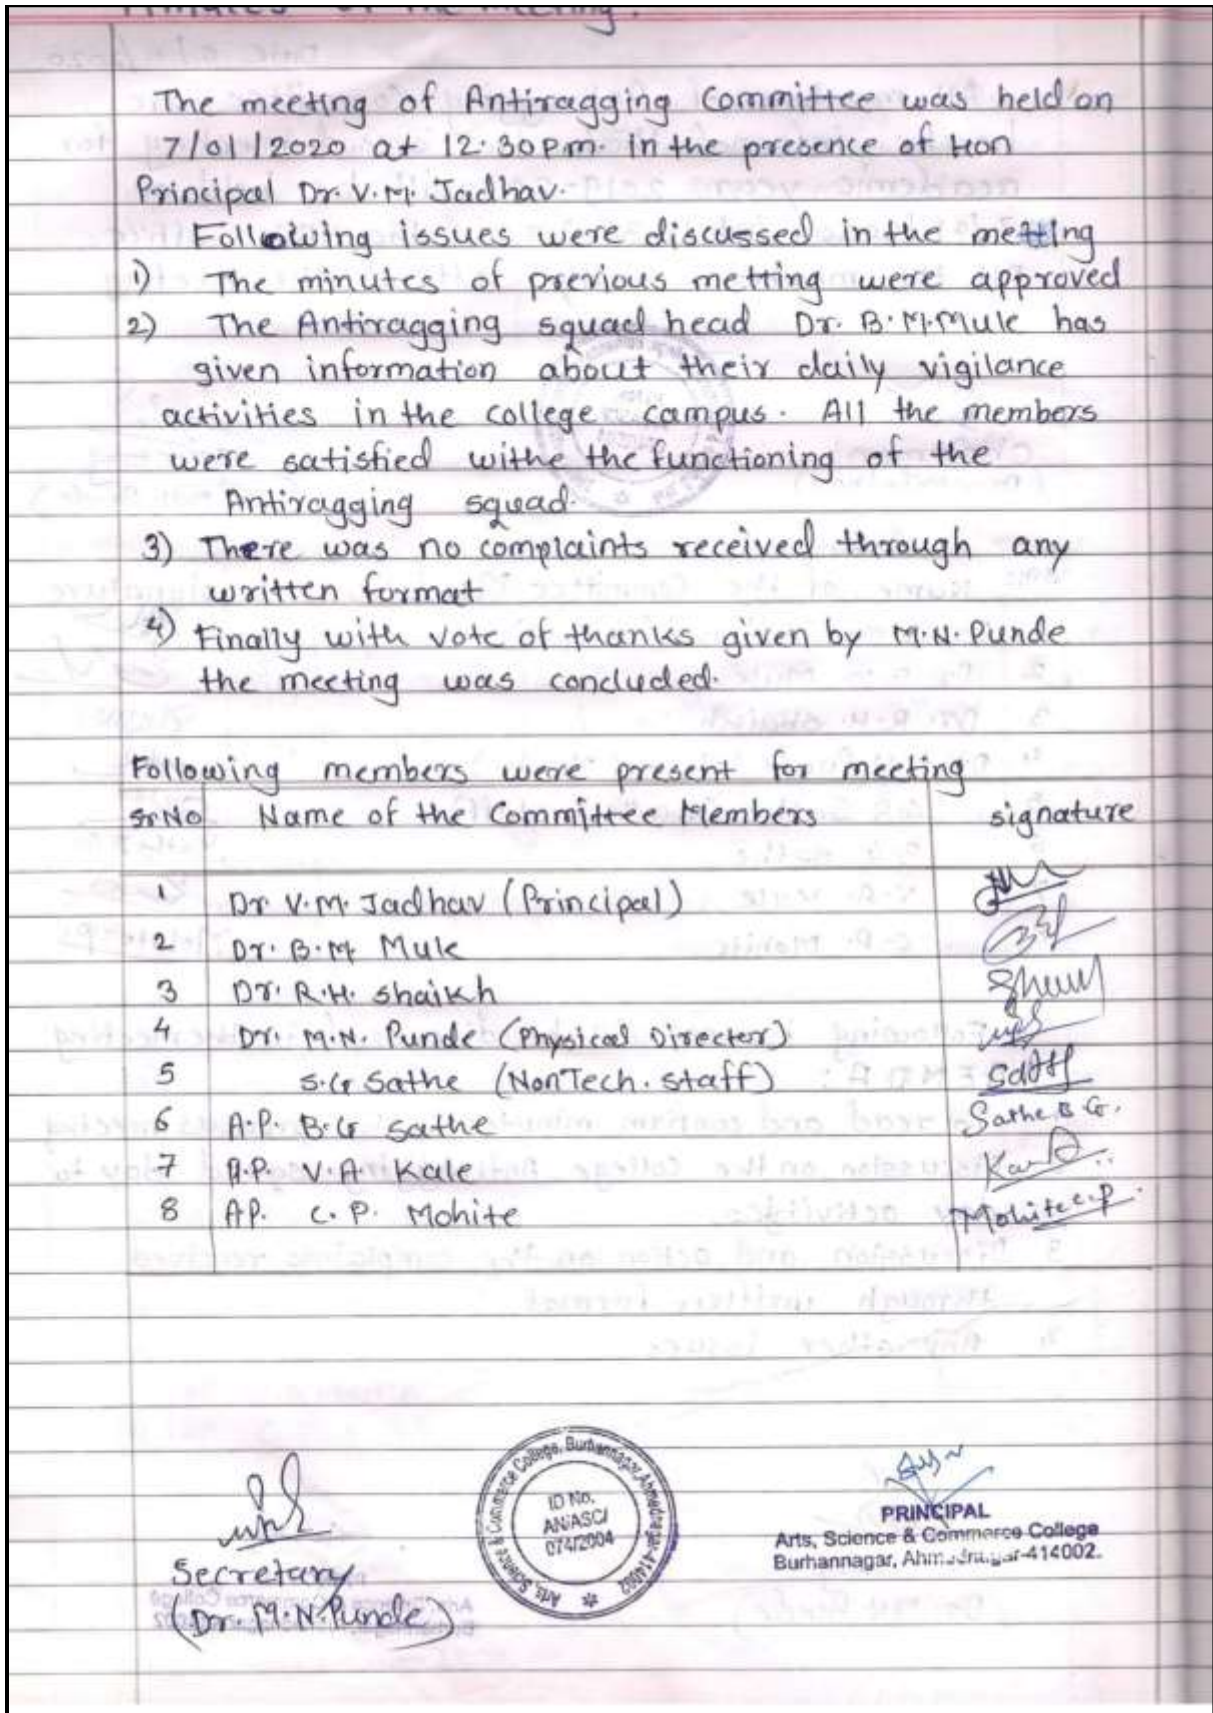 Minutes of the meeting.
The meeting of Antiragging Committee was held on
7/01/2020 at 12.30pm. in the presence of Hon
Principal Dr. V.M. Jadhav.
Following issues were discussed in the metting
1) The minutes of previous metting were approved
2) The Antiragging squad head Dr. B.M.Mule has
given information about their daily vigilance
activities in the college campus. All the members
were satisfied withe the functioning of the
Antiragging squad.
3) There was no complaints received through any
written format
4) Finally with vote of thanks given by M.N. Punde
the meeting was concluded.
Following members were present for meeting
Sr No Name of the Committee Members signature
1 Dr V.M. Jadhav (Principal)
2 Dr. B.M Mule
3 Dr. R.H. Shaikh
4 Dr. M.N. Punde (Physical Director)
5 S.G Sathe (NonTech. staff)
6 A.P. B.G Sathe Sathe B G.
7 A.P. V.A. Kale
8 AP. C.P. Mohite Mohite C.P.
Arts, Science & Commerce College, Burhannagar, Ahmednagar-414002
ID No.
AN/ASC/
074/2004
PRINCIPAL
Arts, Science & Commerce College
Burhannagar, Ahmednagar-414002.
Secretary
(Dr. M.N. Punde)